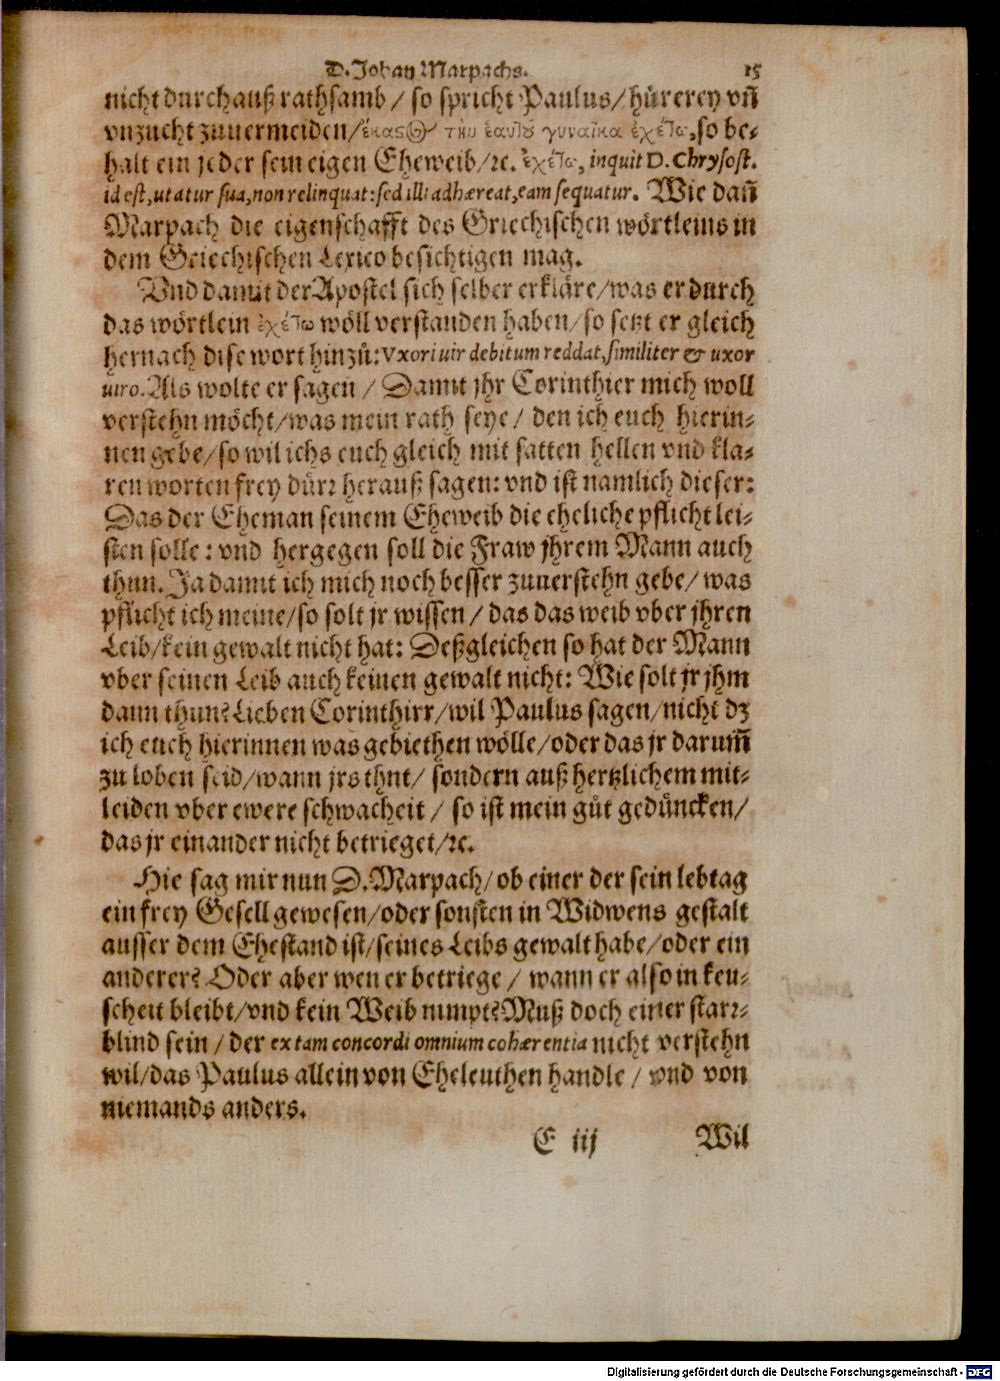 D. Johan Marpachs. 15
nicht durchauß rathsamb / so spricht Paulus / hůrerey vñ
vnzucht zuuermeiden / ἕκαστος τὴν ἑαυτοῦ γυναῖκα ἐχέτω, so be-
halt ein jeder sein eigen Eheweib / ꝛc. ἐχέτω, inquit D. Chrysost.
id est, utatur sua, non relinquat: sed illi adhæreat, eam sequatur. Wie dañ
Marpach die eigenschafft des Griechischen wörtleins in
dem Griechischen Lexico besichtigen mag.
Vnd damit der Apostel sich selber erkläre / was er durch
das wörtlein ἐχέτω wöll verstanden haben / so setzt er gleich
hernach dise wort hinzů: Vxori uir debitum reddat, similiter & uxor
uiro. Als wolte er sagen / Damit jhr Corinthier mich woll
verstehn möcht / was mein rath seye / den ich euch hierin-
nen gebe / so wil ichs euch gleich mit satten hellen vnd kla-
ren worten frey dürꝛ herauß sagen: vnd ist namlich dieser:
Das der Eheman seinem Eheweib die eheliche pflicht lei-
sten solle: vnd hergegen soll die Fraw jhrem Mann auch
thun. Ja damit ich mich noch besser zuuerstehn gebe / was
pflicht ich meine / so solt jr wissen / das das weib vber jhren
Leib / kein gewalt nicht hat: Deßgleichen so hat der Mann
vber seinen Leib auch keinen gewalt nicht: Wie solt jr jhm
dann thun? Lieben Corinthirr / wil Paulus sagen / nicht dz
ich euch hierinnen was gebiethen wölle / oder das jr darum̃
zu loben seid / wann jrs thut / sondern auß hertzlichem mit-
leiden vber ewere schwacheit / so ist mein gůt gedüncken /
das jr einander nicht betrieget / ꝛc.
Hie sag mir nun D. Marpach / ob einer der sein lebtag
ein frey Gesell gewesen / oder sonsten in Widwens gestalt
ausser dem Ehestand ist / seines Leibs gewalt habe / oder ein
anderer? Oder aber wen er betriege / wann er also in keu-
scheit bleibt / vnd kein Weib nimpt? Muß doch einer starꝛ-
blind sein / der ex tam concordi omnium cohærentia nicht verstehn
wil / das Paulus allein von Eheleuthen handle / vnd von
niemands anders.
E iij Wil
Digitalisierung gefördert durch die Deutsche Forschungsgemeinschaft - DFG